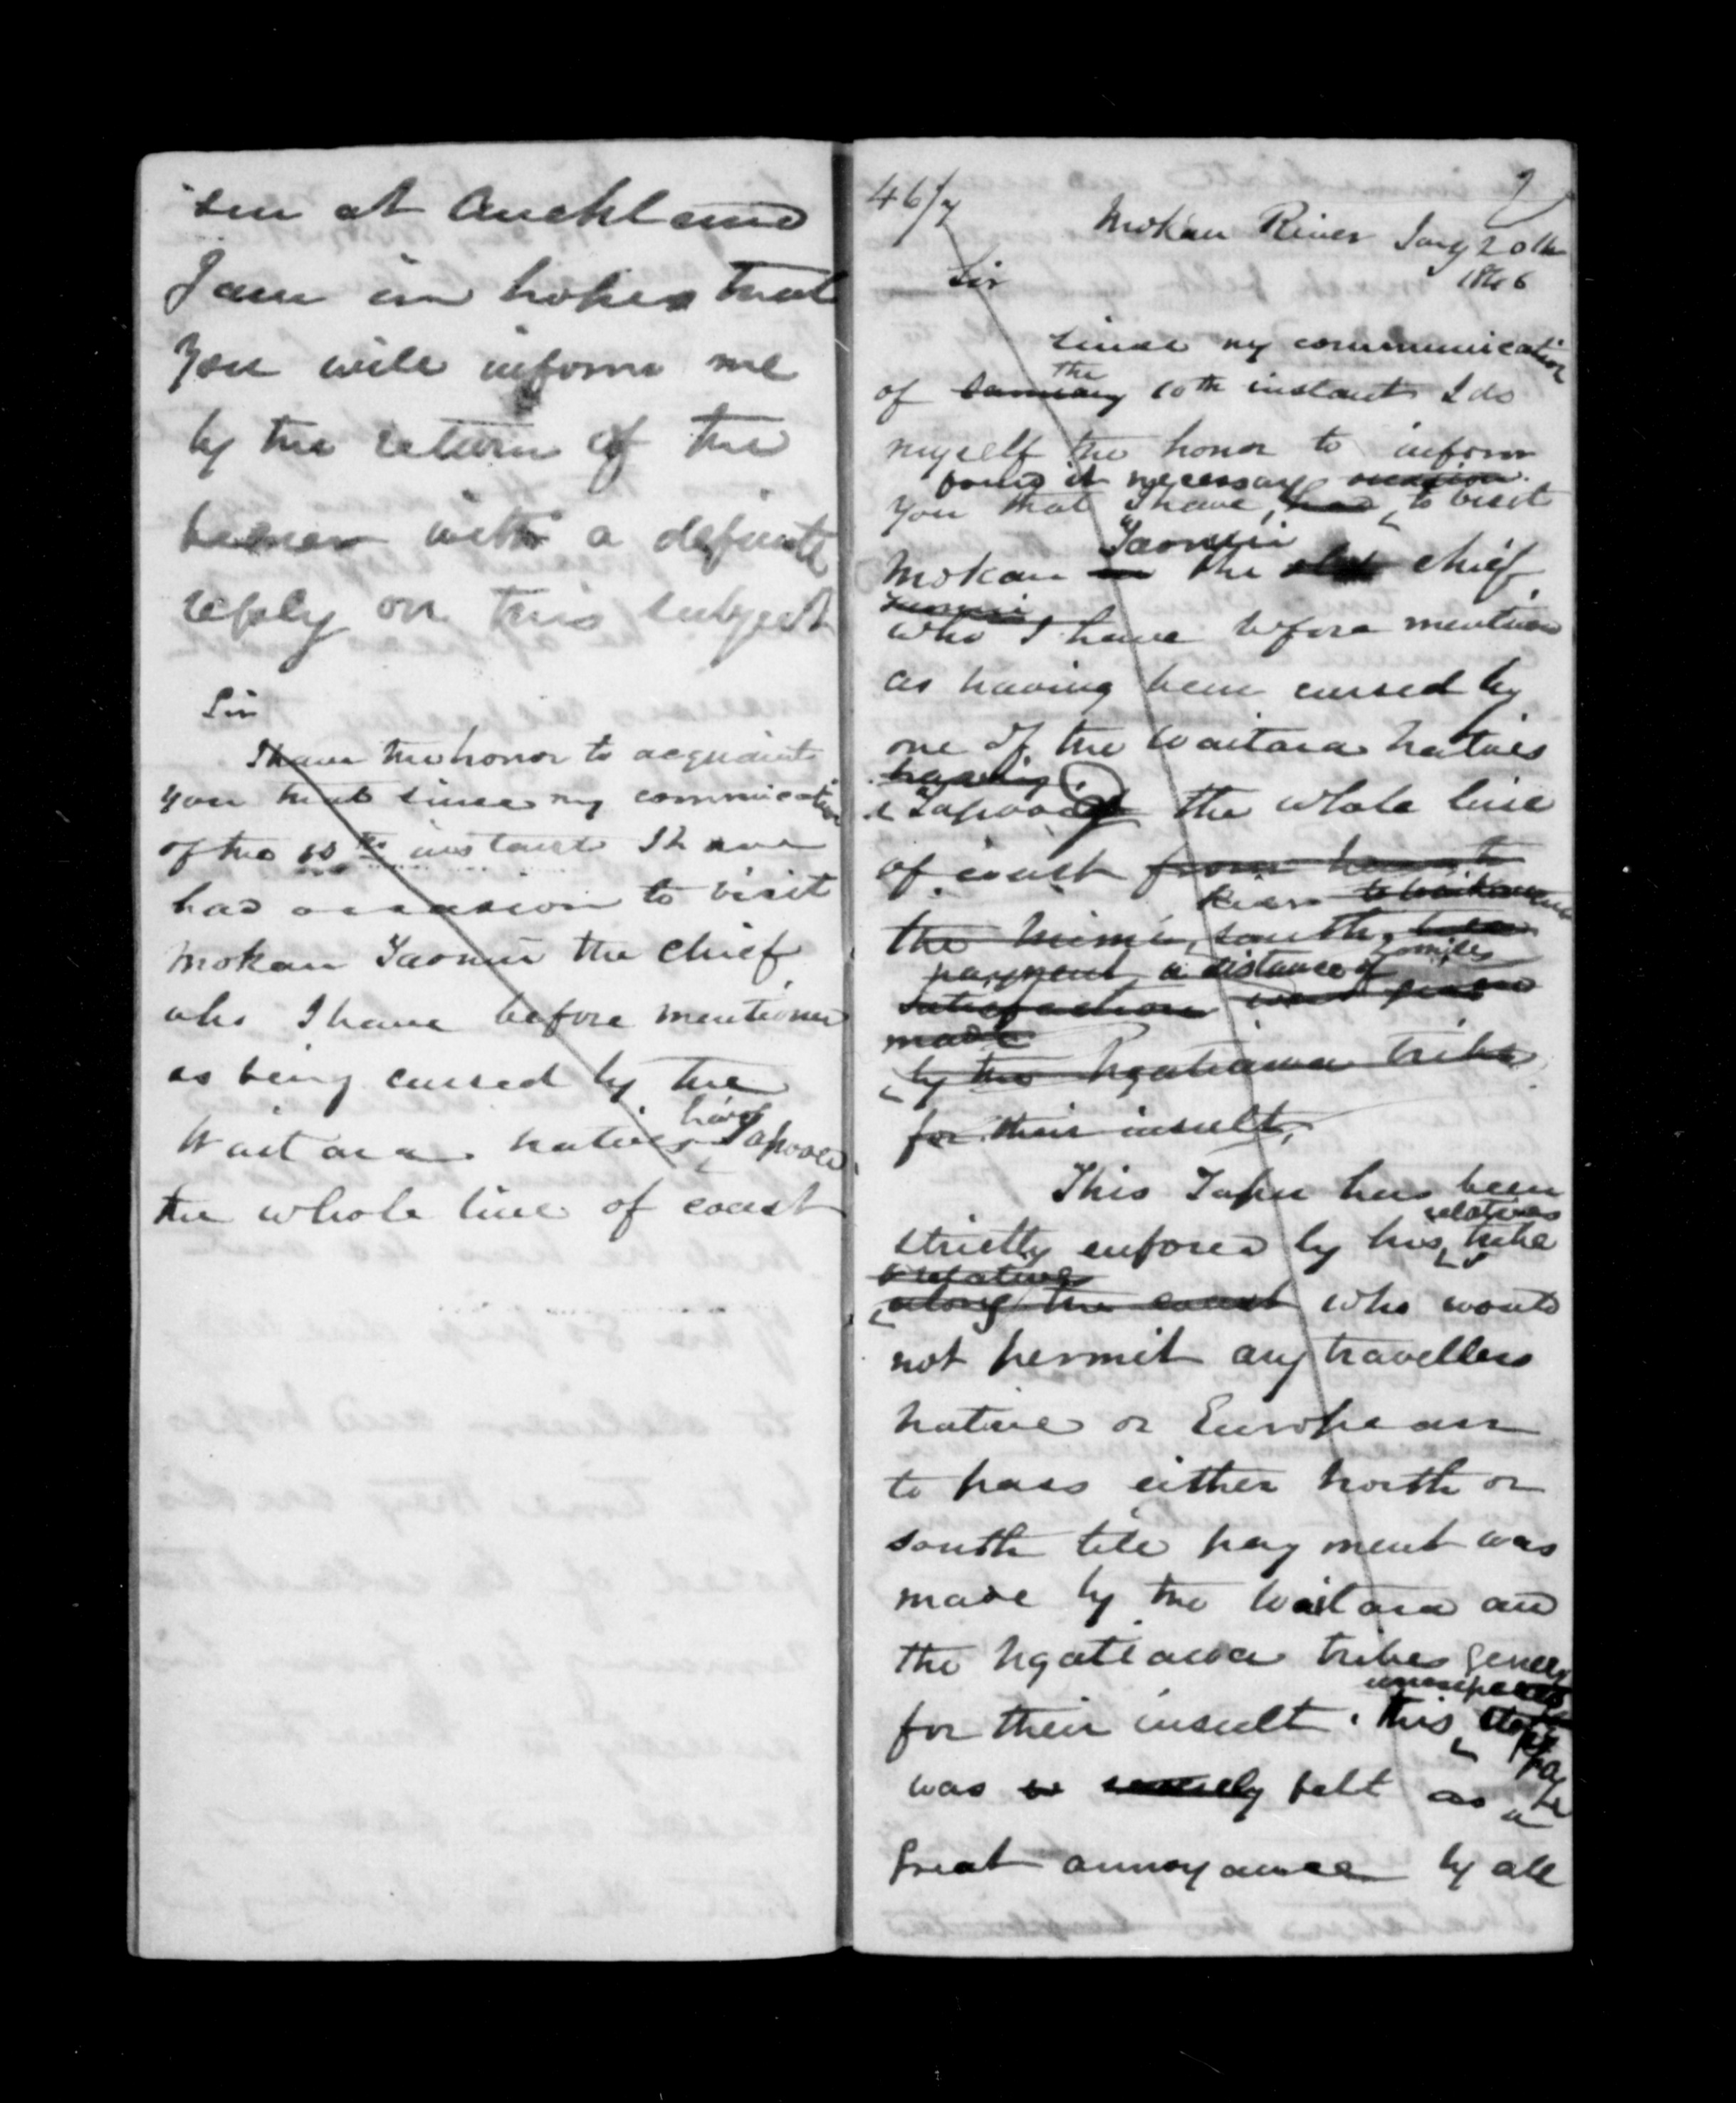 seu at Auckland
I am in hopes that
you will inform me
by the return of the
bearer with a definite
reply on this subject
Sir
I have the honor to acquaint
you that since my communication
of the 10th instant I have
had occasion to visit
Mokau Taonui the chief
who I have before mentioned
as being cursed by the
Waitara natives having Tapooed
the whole line of coast
46/7
2
Mokau River Jany 20th
1846
Sir
Since my communication
the
of January 10th instant I do
myself the honor to inform
found it necessary occasion
you that I have, had to visit
Taonui
Mokau the chief
Taonui
who I have before mention
as having been cursed by
one of the Waitara natives
having
& Tapooed the whole line
of coast from
River
the Mimi, south
payment a distance of miles
satisfaction
made
by the Ngatiawa tribe
for their insult,
This Tapu has been
relatives
strictly enforced by his tribe
& relatives
along the coast who would
not permit any travellers
native or European
to pass either north or
south till payment was
made by the Waitara and
the Ngatiawa tribes
for their insult. this
was severely felt as a
great annoyance by all